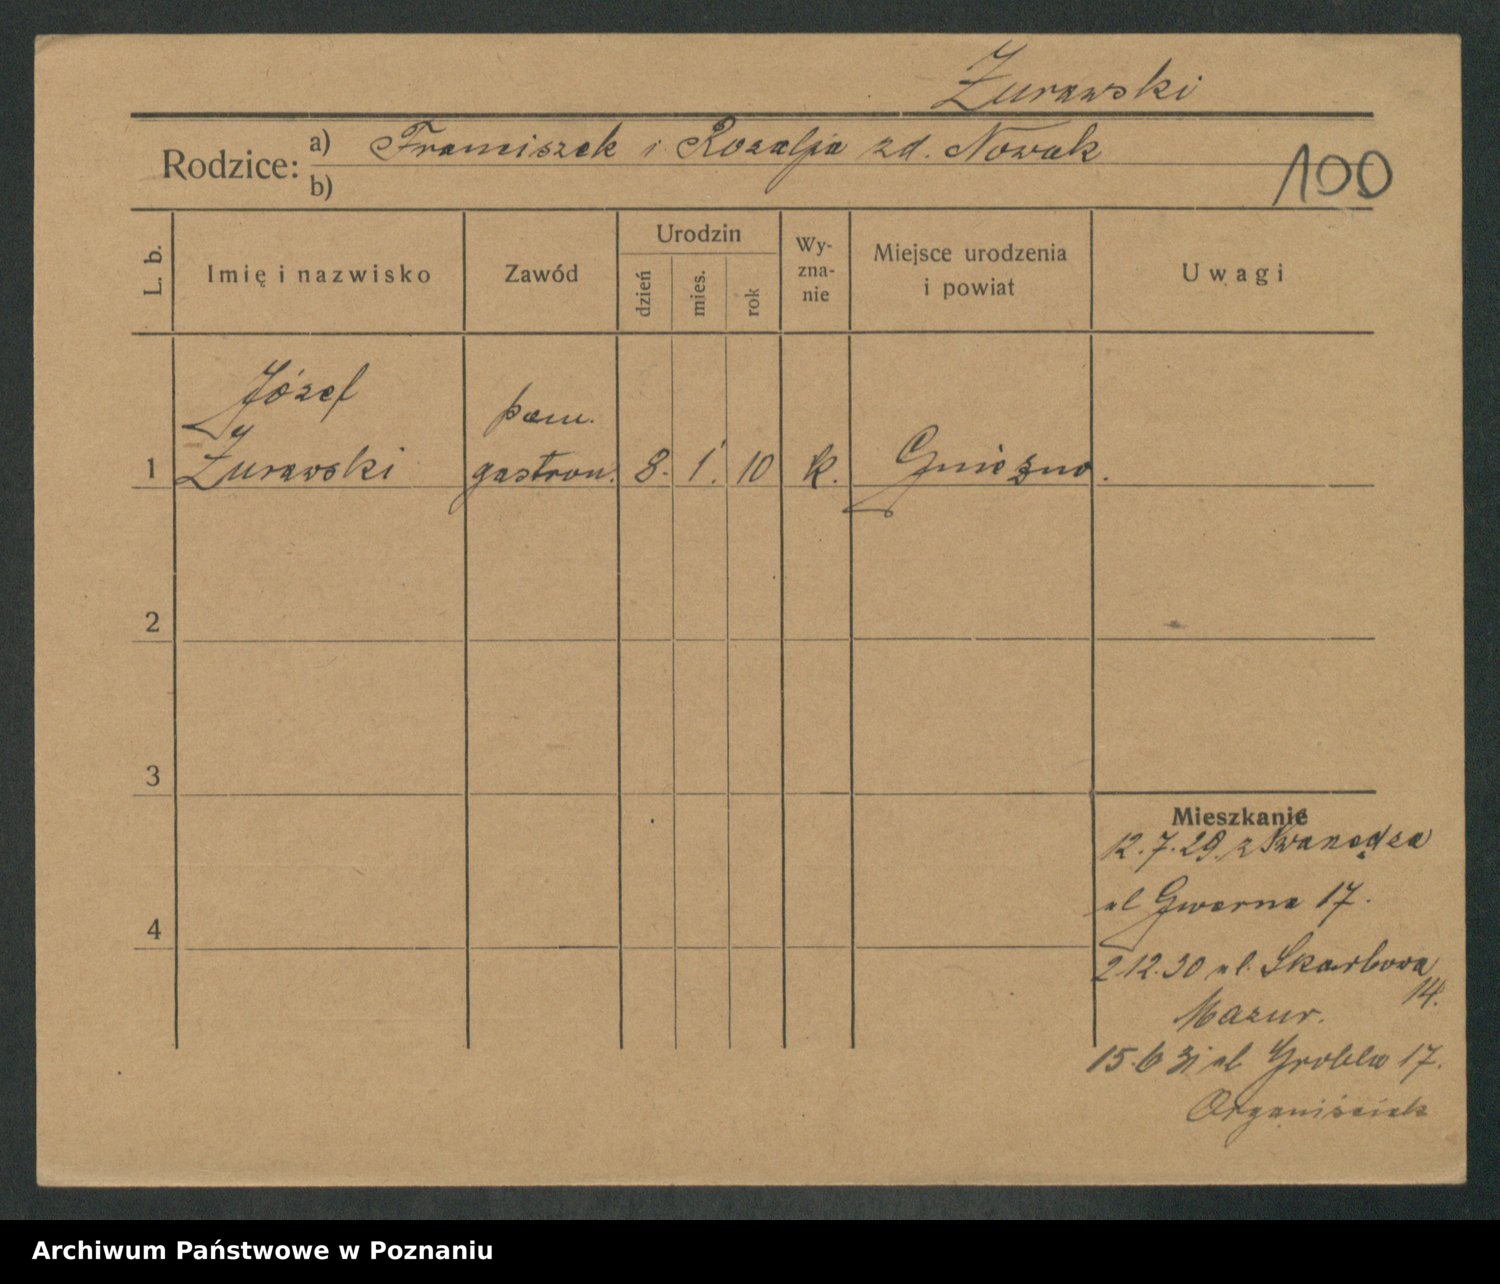 Żurawski
Rodzice: a) Franciszek i Rozalja zd. Nowak
b)
100
L. b.
Imię i nazwisko
Zawód
Urodzin
dzień
mies.
rok
Wy-
zna-
nie
Miejsce urodzenia
i powiat
Uwagi
Józef
pom.
1 Żurawski gastron. 8. 1. 10 k. Gniezno.
2
3
Mieszkanie
12.7.29. z
ul Gwarna 17.
4
2.12.30 ul. Skarbowa
14.
Mazur.
15.6 31 ul Grobla 17.
Organiściak
Archiwum Państwowe w Poznaniu